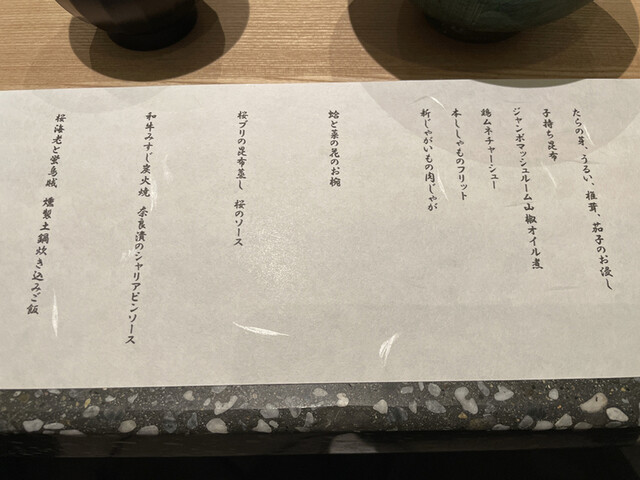 たらの芽、うるい、椎茸、茄子のお浸し
子持ち昆布
ジャンボマッシュルーム山椒オイル煮
鶏ムネチャーシュー
本ししゃものフリット
新じゃがいもの肉じゃが
蛤と菜の花のお椀
桜ブリの昆布蒸し 桜のソース
和牛みすじ炭火焼 奈良漬のシャリアピンソース
桜海老と蛍烏賊 燻製土鍋炊き込みご飯